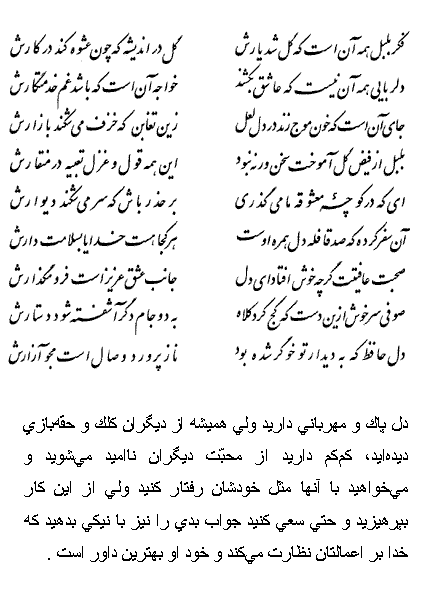 فکر بلبل همه آن است که گل شد یارش گل در اندیشه که چون عشوه کند در کارش
دلربایی همه آن نیست که عاشق بکشند خواجه آن است که باشد غم خدمتکارش
جای آن است که خون موج زند در دل لعل زین تغابن که خزف می‌شکند بازارش
بلبل از فیض گل آموخت سخن ورنه نبود این همه قول و غزل تعبیه در منقارش
ای که در کوچهٔ معشوقه ما می‌گذری بر حذر باش که سر می‌شکند دیوارش
آن سفر کرده که صد قافله دل همره اوست هر کجا هست خدایا بسلامت دارش
صحبت عافیتت گرچه خوش افتاد ای دل جانب عشق عزیز است فرو مگذارش
صوفی سرخوش ازین دست که کج کرد کلاه به دو جام دگر آشفته شود دستارش
دل حافظ که به دیدار تو خوگر شده بود ناز پرورد وصال است مجو آزارش
دل پاك و مهرباني داريد ولي هميشه از ديگران كلك و حقه‌بازي
ديده‌ايد، كم‌كم داريد از محبّت ديگران نااميد مي‌شويد و
مي‌خواهيد با آنها مثل خودشان رفتار كنيد ولي از اين كار
بپرهيزيد و حتي سعي كنيد جواب بدي را نيز با نيكي بدهيد كه
خدا بر اعمالتان نظارت مي‌كند و خود او بهترين داور است .